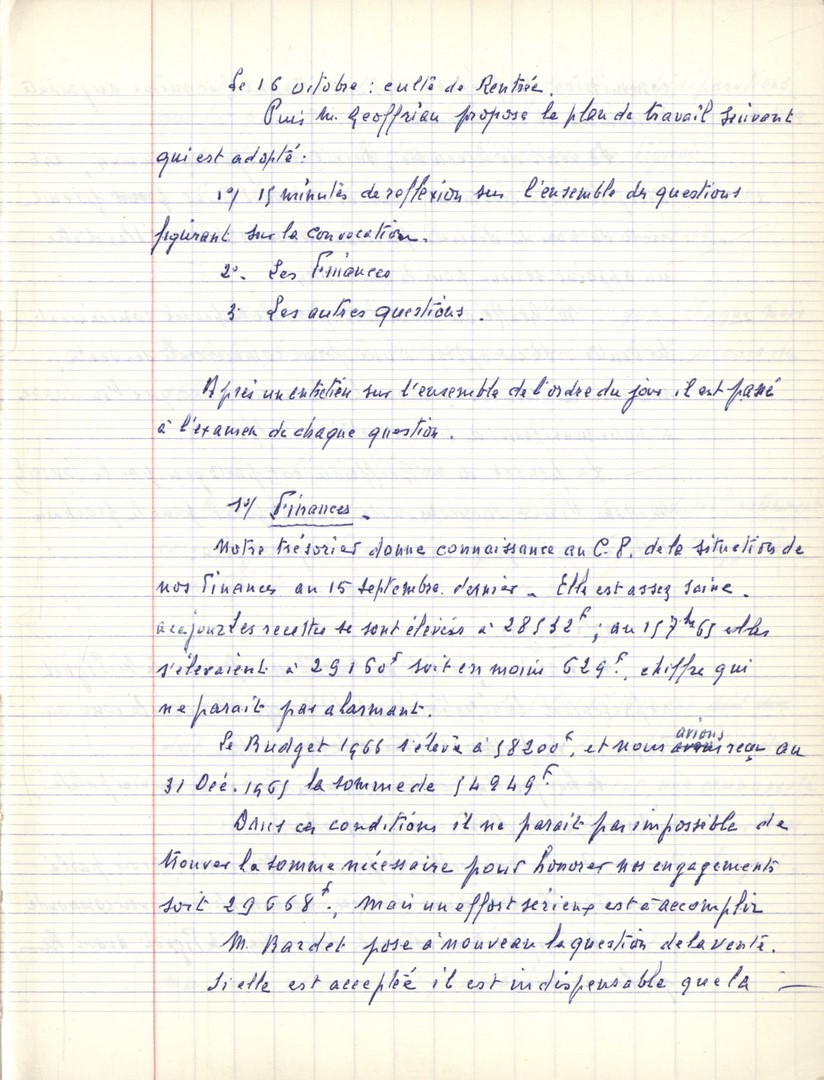 Le 16 octobre : culte de Rentrée.
Puis M. Geoffrian propose le plan de travail suivant
qui est adopté :
1°/ 15 minutes de reflexion sur l'ensemble des questions
figurant sur la convocation.
2°. Les Finances
3. Les autres questions.
Après un entretien sur l'ensemble de l'ordre du jour il est passé
à l'examen de chaque question.
1°/ Finances.
Notre trésorier donne connaissance au C.P. de la situation de
nos Finances au 15 septembre dernier. Elle est assez saine.
a ce jour les recettes se sont élevées à 28532F ; au 15 7bre 65 elles
s'élevaient à 29160F soit en moins 629F. chiffre qui
ne parait pas alarmant.
Le Budget 1966 s'élève à 58200F, et nous avions reçu au
31 Déc. 1965 la somme de 54949F.
Dans ces conditions il ne parait pas impossible de
trouver la somme nécessaire pour honorer nos engagements
soit 29668F., mais un effort sérieux est à accomplir
M. Bardet pose à nouveau la question de la vente.
Si elle est acceptée il est indispensable que la